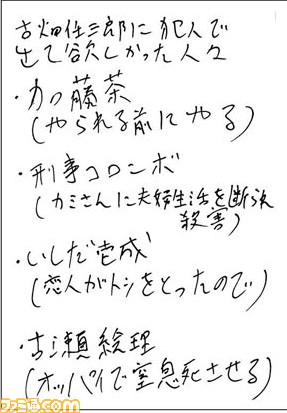 古畑任三郎に犯人で
出て欲しかった人々
・加藤茶
(やられる前にやる)
・刑事コロンボ
(カミさんに夫婦生活を断られ
殺害)
・いしだ壱成
(恋人がトシをとったので)
・古瀬絵理
(オッパイで窒息死させる)
ファミ通.com